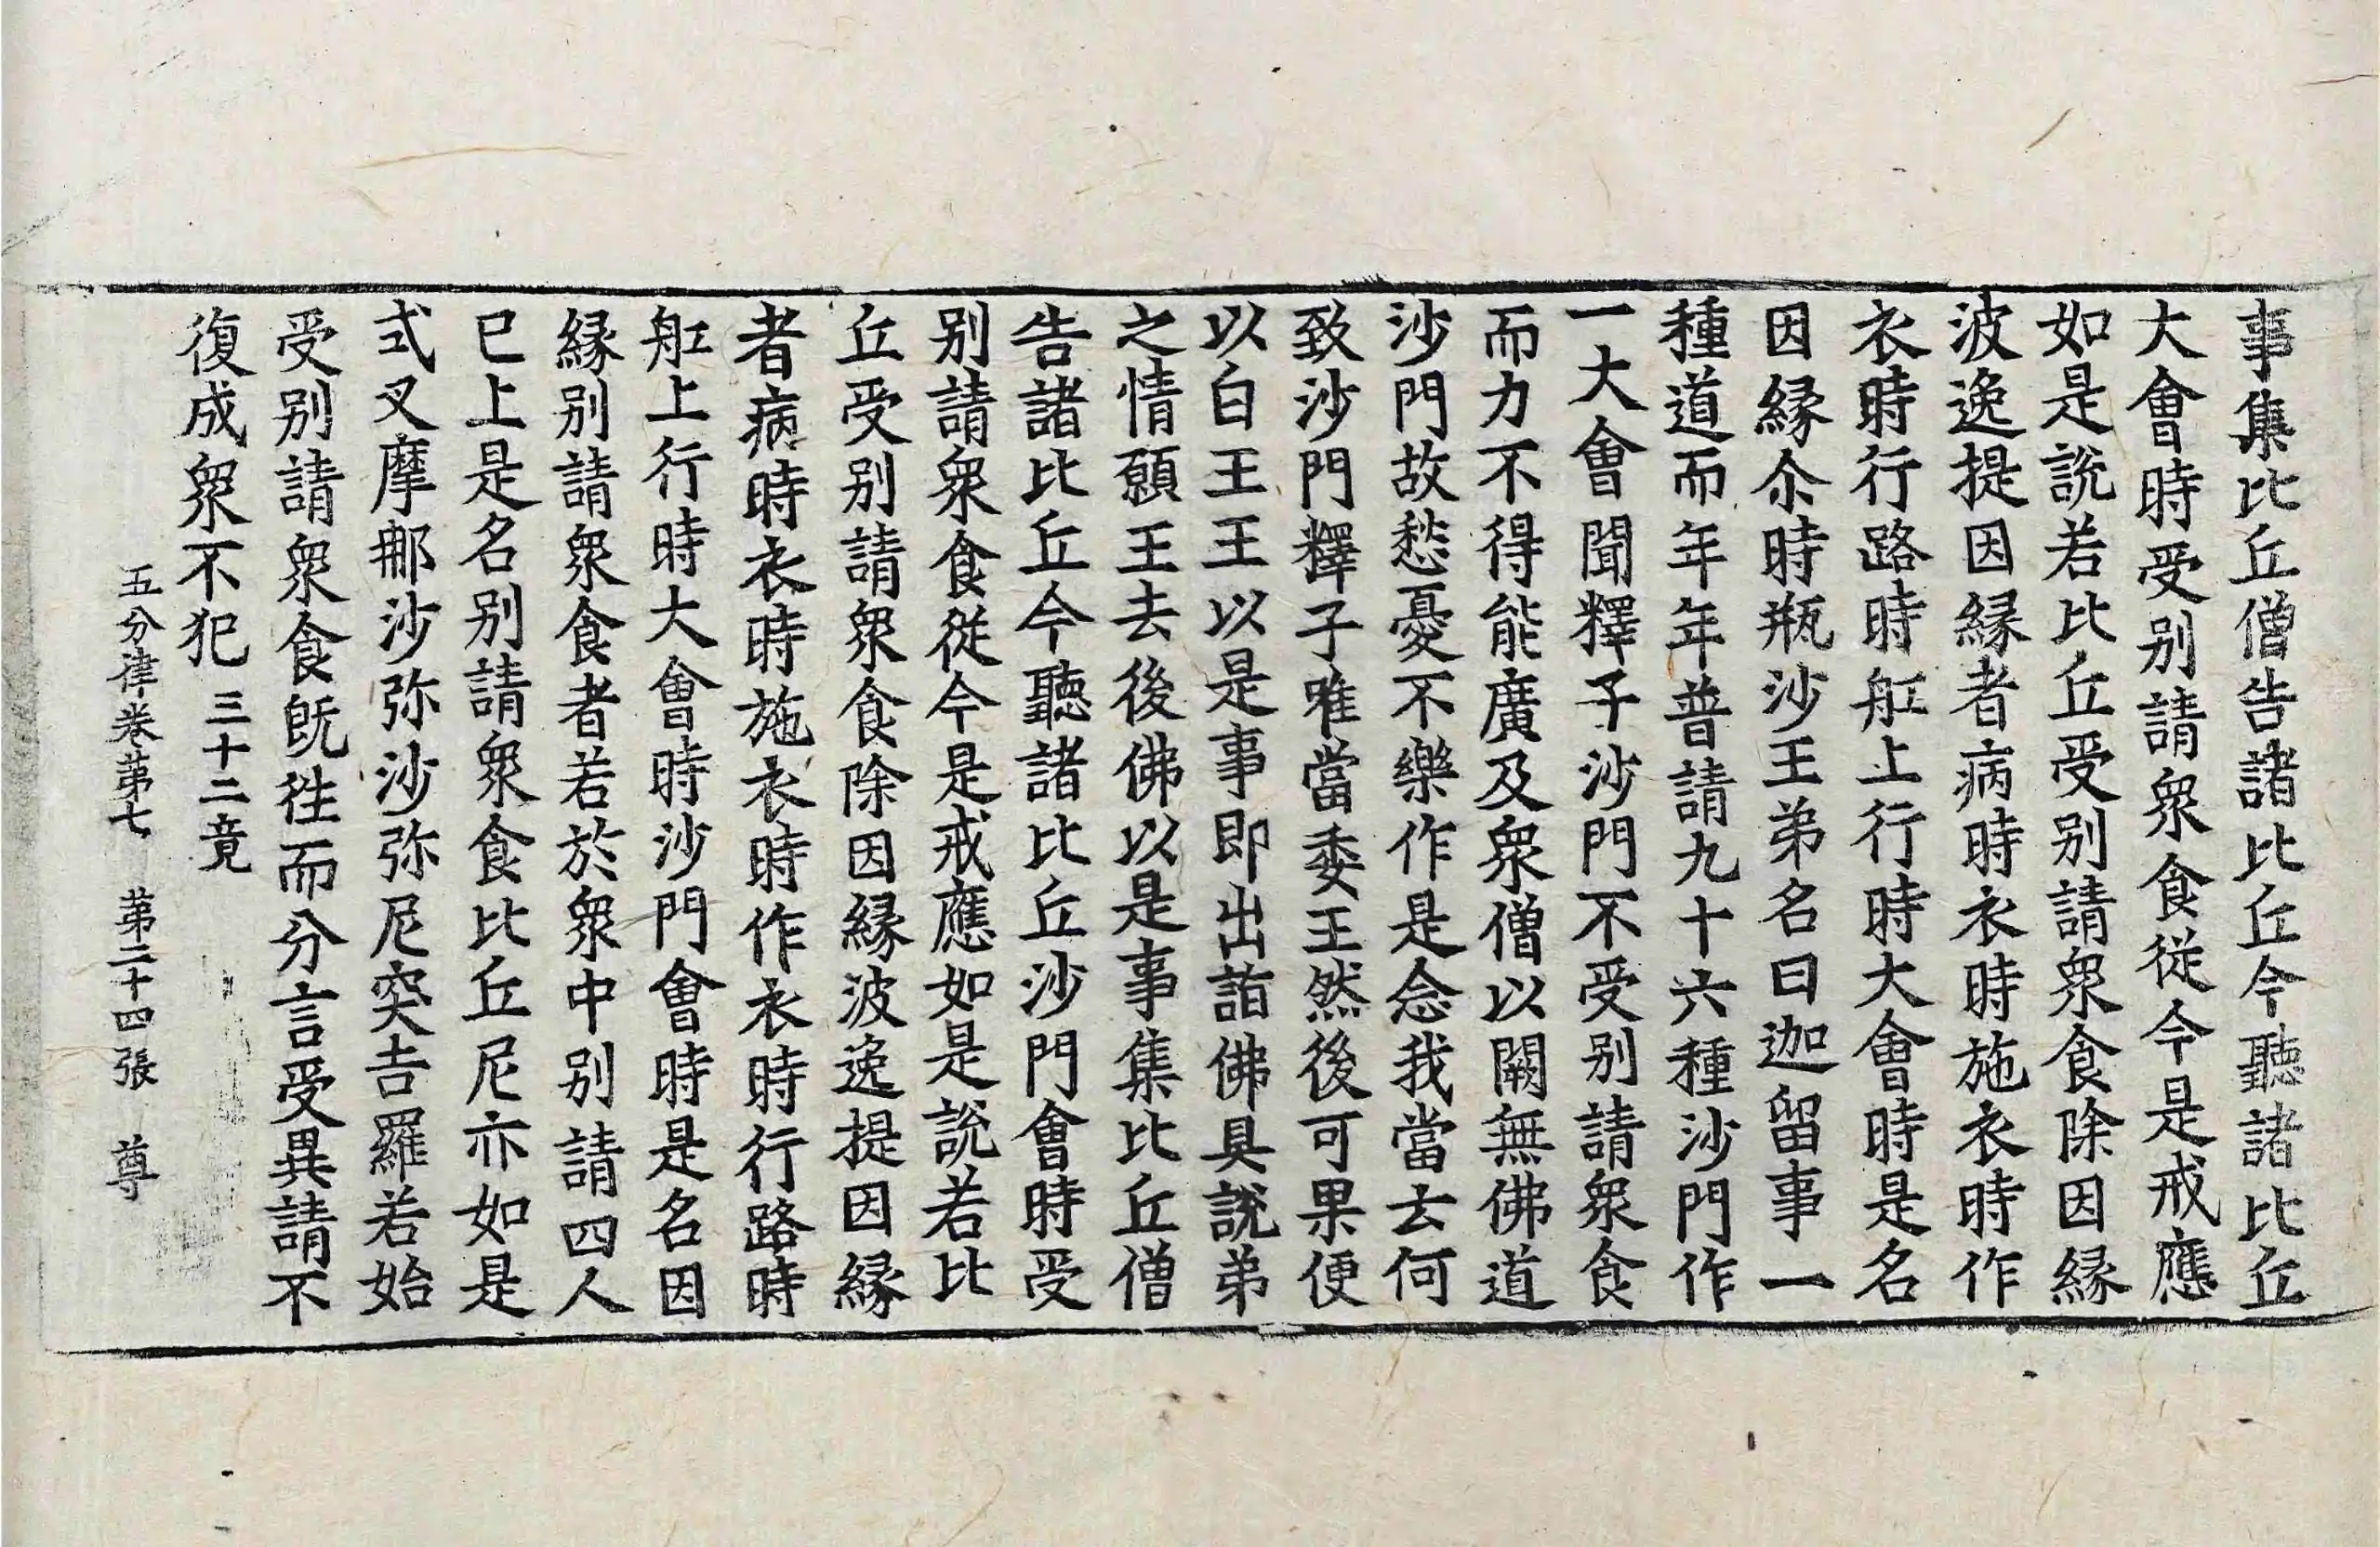 事集比丘僧告諸比丘今聽諸比丘
大會時受别請衆食從今是戒應
如是說若比丘受别請衆食除因縁
波逸提因縁者病時衣時施衣時作
衣時行路時舡上行時大會時是名
因縁尒時瓶沙王弟名曰迦留事一
種道而年年普請九十六種沙門作
一大會聞釋子沙門不受别請衆食
而力不得能廣及衆僧以闕無佛道
沙門故愁憂不樂作是念我當去何
致沙門釋子唯當委王然後可果便
以白王王以是事即出詣佛具說弟
之情願王去後佛以是事集比丘僧
告諸比丘今聽諸比丘沙門會時受
别請衆食從今是戒應如是說若比
丘受别請衆食除因縁波逸提因縁
者病時衣時施衣時作衣時行路時
舡上行時大會時沙門會時是名因
縁别請衆食者若於衆中别請四人
已上是名别請衆食比丘尼亦如是
式叉摩那沙弥沙弥尼突吉羅若始
受别請衆食旣徃而分言受異請不
復成衆不犯 三十二竟
五分律卷第七 第二十四張 尊